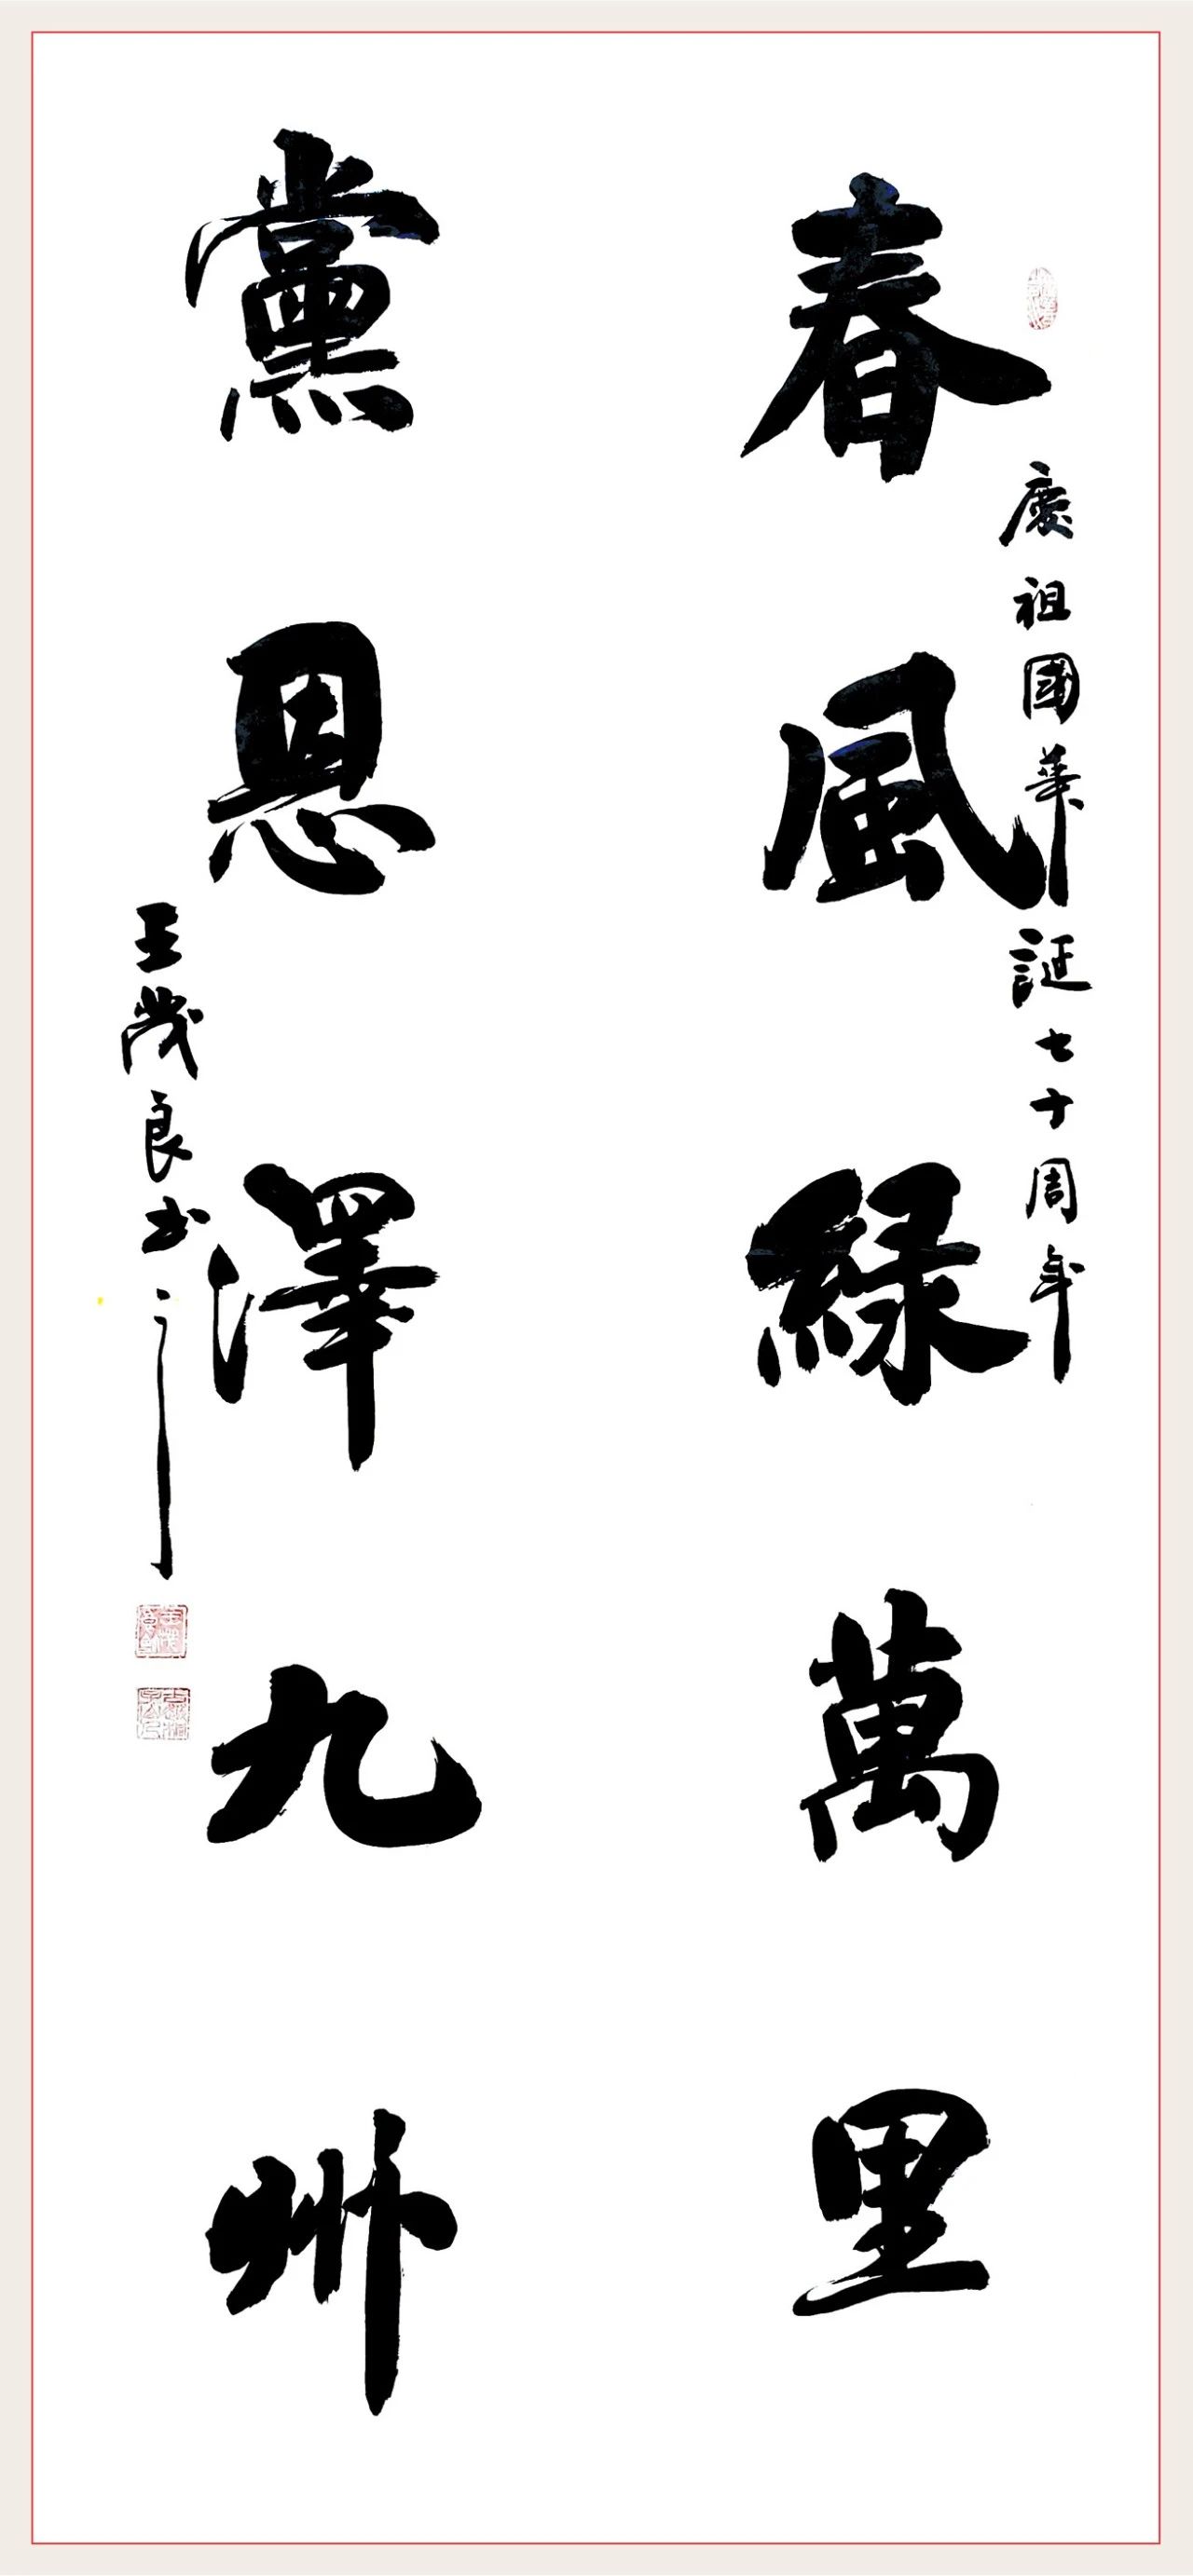 慶祖國華誕七十周年
春風緑萬里
黨恩澤九州
王茂良书之